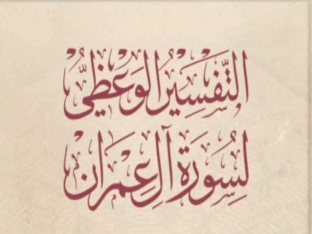 التَّفْسِيرُ الوَعْظِيُّ
لِسُورَةِ آلِ عِمْرَان